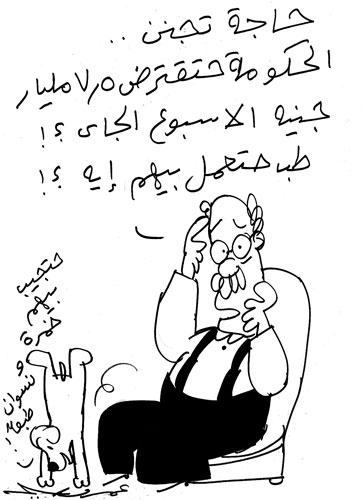 حاجة تجنن ..
الحكومة حتقترض ٧٫٥ مليار
جنيه الاسبوع الجاى ؟!
طب حتعمل بيهم إيه ؟!
حتجيب
بيهم
خمرة
و نسوان
طبعا!